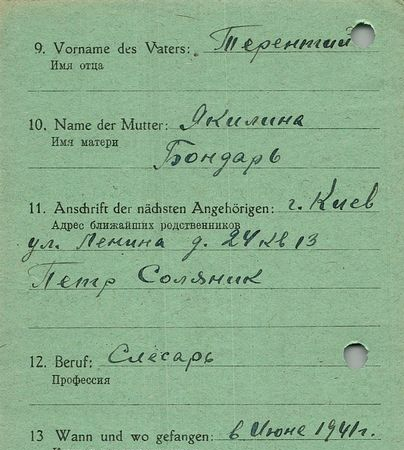 9. Vorname des Vaters: Терентий
Имя отца
10. Name der Mutter: Якилина
Имя матери
Бондарь
11. Anschrift der nächsten Angehörigen: г. Киев
Адрес ближайших родственников
ул. Ленина д. 24 кв 13
Петр Соляник
12. Beruf: Слесарь
Профессия
13 Wann und wo gefangen: в Июне 1941 г.